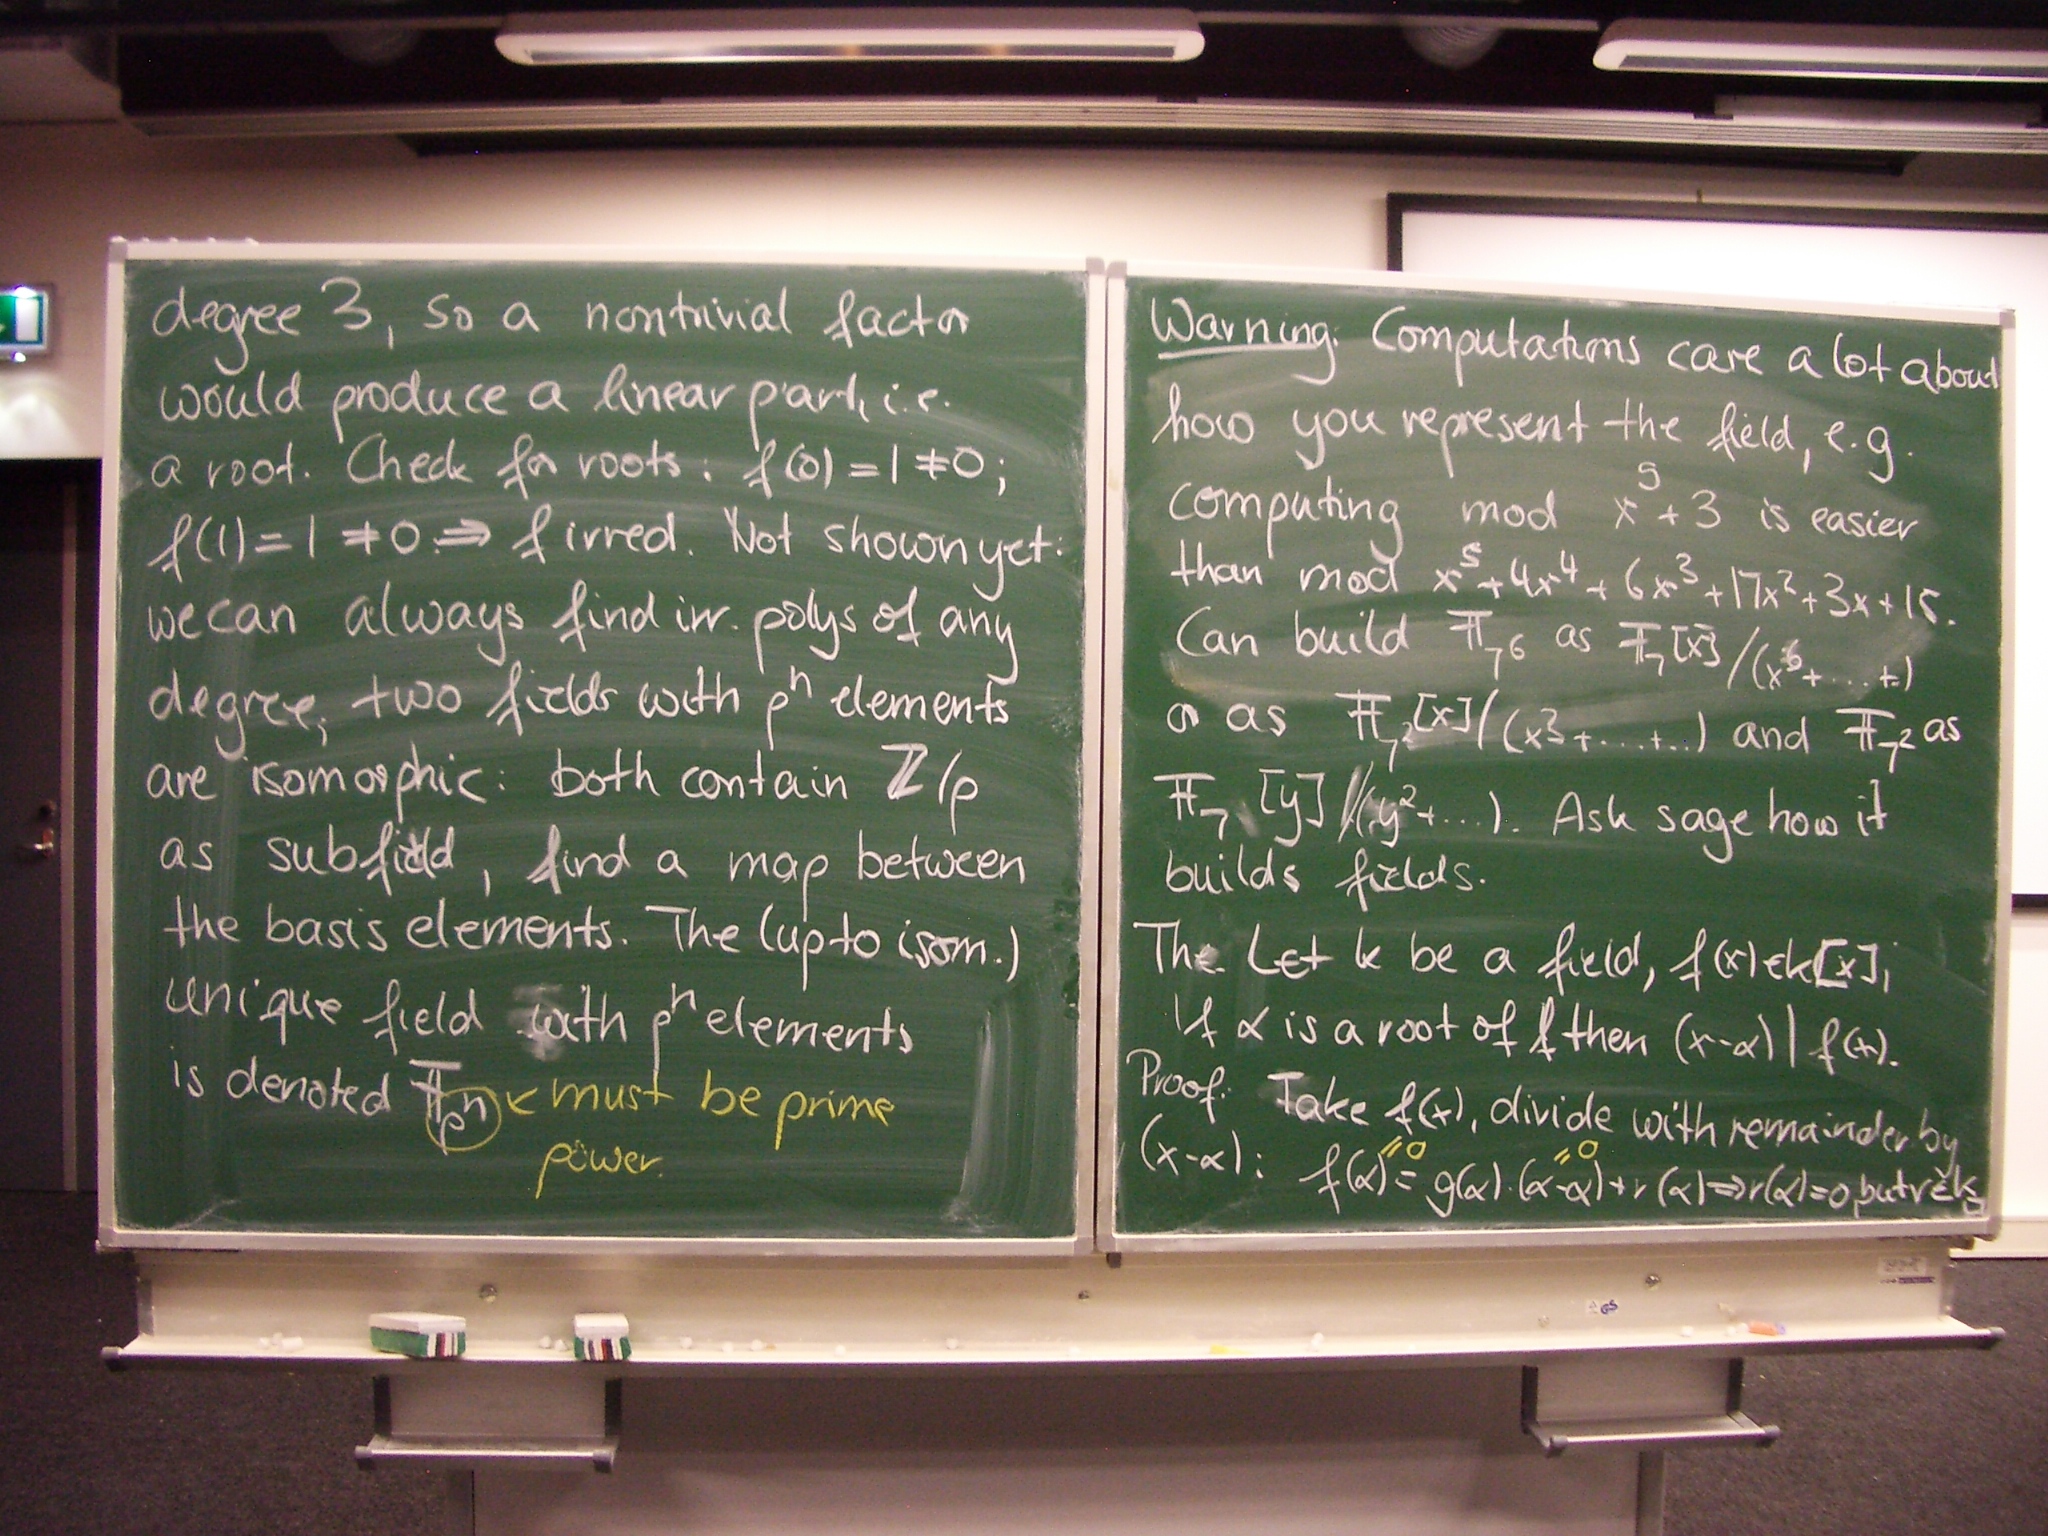 degree 3, so a nontrivial factor
would produce a linear part, i.e.
a root. Check for roots: f(0)=1≠0;
f(1)=1≠0 ⇒ f irred. Not shown yet:
we can always find irr. polys of any
degree, two fields with p^n elements
are isomorphic: both contain ℤ/p
as subfield, find a map between
the basis elements. The (up to isom.)
unique field with p^n elements
is denoted 𝔽_{p^n} < must be prime
power.
Warning: Computations care a lot about
how you represent the field, e.g.
computing mod x^5+3 is easier
than mod x^5+4x^4+6x^3+17x^2+3x+15.
Can build 𝔽_{7^6} as 𝔽_7[x]/(x^6+...+.)
or as 𝔽_{7^2}[x]/(x^3+...+..) and 𝔽_{7^2} as
𝔽_7[y]/(y^2+...). Ask sage how it
builds fields.
The. Let k be a field, f(x)∈k[x],
If α is a root of f then (x-α)|f(x).
Proof: Take f(x), divide with remainder by
(x-α): f(α)=g(α)·(α-α)+r(α)⇒r(α)=0, but r∈k
=0 =0